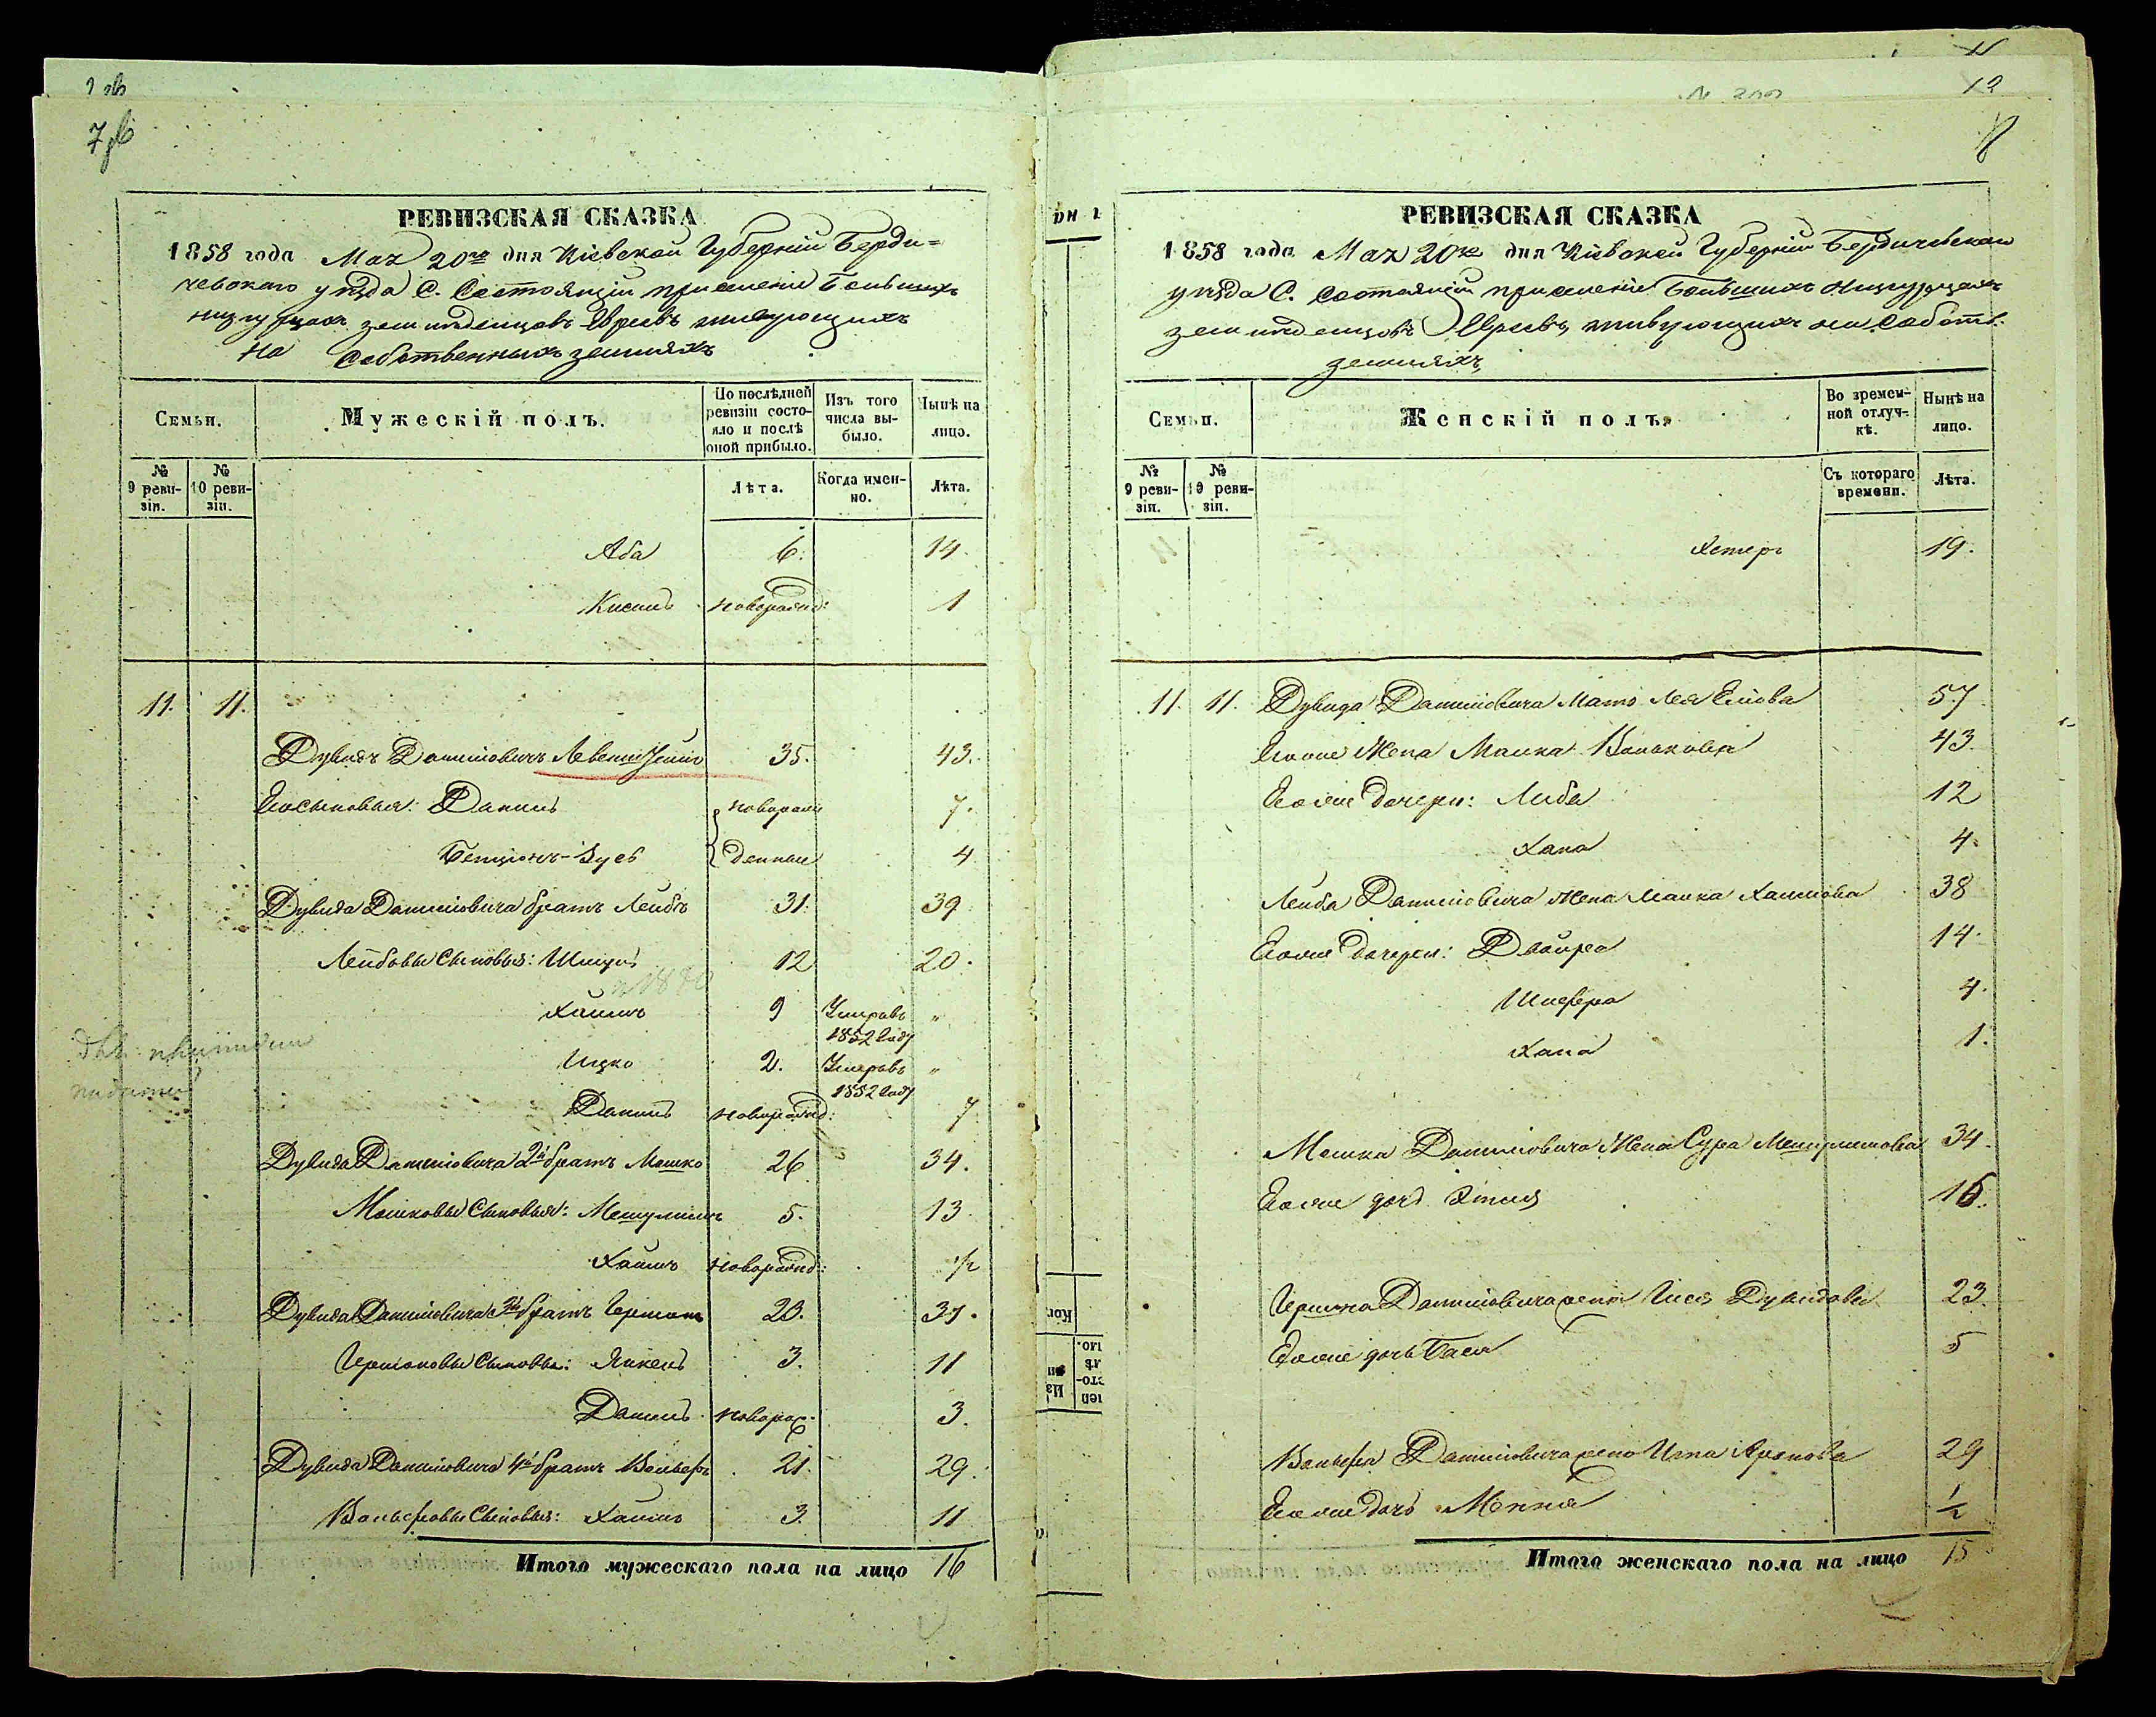 7 об
12
8
РЕВИЗСКАЯ СКАЗКА
1858 года Мая 20го дня Кіевской Губерніи Берди=
чевскаго уѣзда С. Состоящіи при селеніе Большихъ
земледельцовъ Евреевъ живущихъ
на Собственныхъ земляхъ
Семьи.
Мужескій полъ.
По послѣдней ревизіи состояло и послѣ оной прибыло.
Изъ того числа выбыло.
Нынѣ на лицо.
№ 9 ревизіи.
№ 10 ревизіи.
Лѣта.
Когда именно.
Лѣта.
Аба 6. 14.
Кисель новорожд: 1
11. 11.
Дувидъ Данииловичъ 35. 43.
Его сыновья: Данилъ новорож 7.
Бенціонъ-Зусь денные 4
Дувида Данииловича братъ Лейбъ 31. 39
Лейбовы Сыновья: 12 20.
Хаимъ 9 Умеръ въ 1852 Году "
Ицко 2. Умеръ въ 1852 Году "
Данилъ новорожд: 7
Дувида Данииловича 2й братъ Мошко 26 34.
Мошковы Сыновья: Мешулимъ 5. 13.
Хаимъ новорожд: ½
Дувида Данииловича 3й братъ Гершонъ 23. 31.
Гершоновы Сыновья: Янкель 3. 11
Данилъ новорож. 3.
Дувида Данииловича 4й братъ Вольфъ 21. 29.
Вольфовы Сыновья: Хаимъ 3. 11
Итого мужескаго пола на лицо 16
РЕВИЗСКАЯ СКАЗКА
1858 года Мая 20го дня Кіевской Губерніи Бердичевскаго
уѣзда С. Состоящіи при селеніе Большихъ
земледельцовъ Евреевъ, живущихъ на Собств.
земляхъ
Семьи.
Женскій полъ.
Во времен-ной отлуч-кѣ.
Нынѣ на лицо.
№ 9 ревизіи.
№ 10 ревизіи.
Съ котораго времени.
Лѣта.
Хетеръ 19.
11. 11. Дувида Данииловича Мать Лея 57
Его же Жена Малка Волькова 43
Его же дочери: Либа 12
Хана 4.
Лейба Данииловича Жена Малка Хаимова 38
Его же дочери: Двойра 14.
Шифра 4.
Хана 1.
Мошка Данииловича Жена Сура Мешулимова 34.
Его же дочь 16.
Гершона Данииловича жена Дувидова 23.
Его же дочь Бася 5
Вольфа Данииловича жена Аронова 29
Его же Дочь ½
Итого женскаго пола на лицо 15